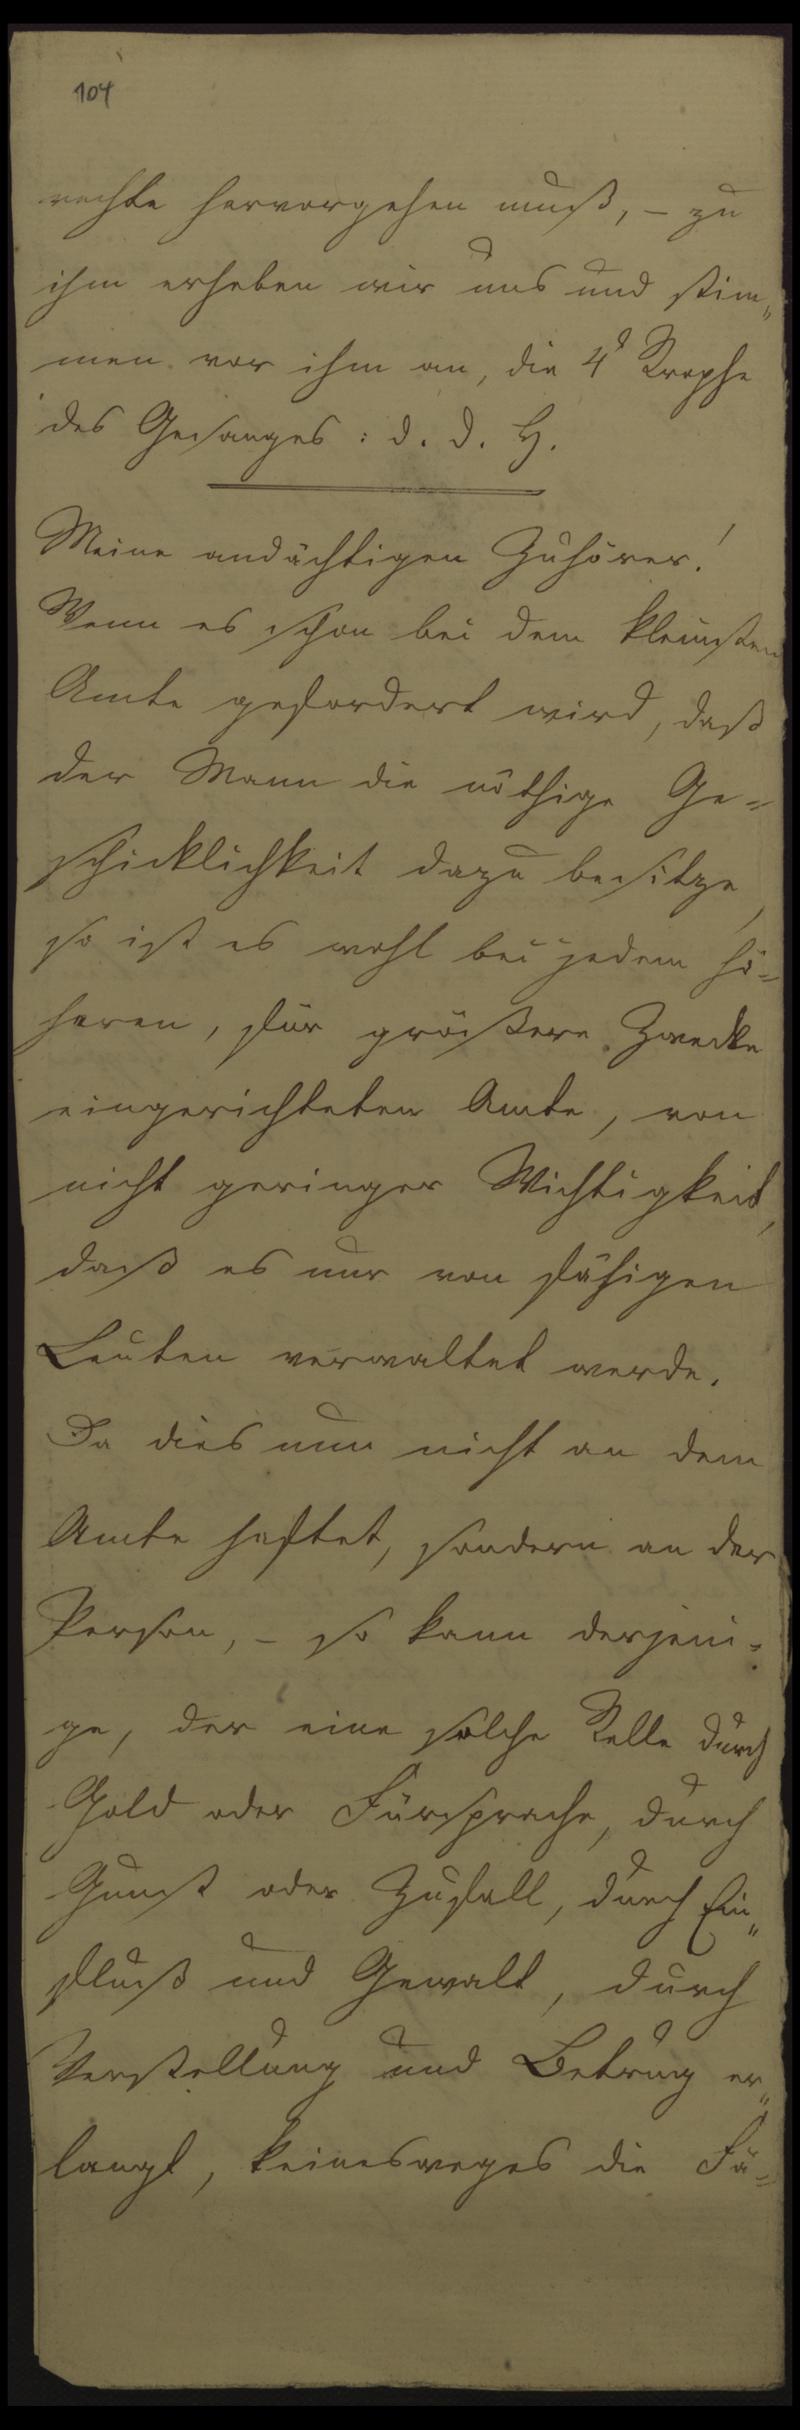 104
rechte hervorgehen muß, – zu
ihm erheben wir uns und stim„
men vor ihm an, die 4t Strophe
des Gesanges: d. d. H.
Meine andächtigen Zuhörer!
Wenn es schon bei dem kleinsten
Amte gefordert wird, daß
der Mann die nöthige Ge=
schicklichkeit dazu besitze,
so ist es wohl bei jedem hö=
heren, für größere Zwecke
eingerichteten Amte, von
nicht geringer Wichtigkeit,
daß es nur von fähigen
Leuten verwaltet werde.
Da dies nun nicht an dem
Amte haftet, sondern an der
Person, – so kann derjeni=
ge, der eine solche Stelle durch
Geld oder Fürsprache, durch
Gunst oder Zufall, durch Ein„
fluß und Gewalt, durch
Verstellung und Betrug er„
langt, keinesweges die Fä=